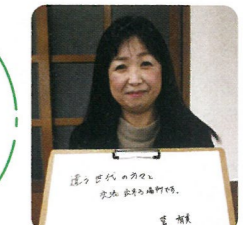 違う世代の方々と
交流出来る場所です。